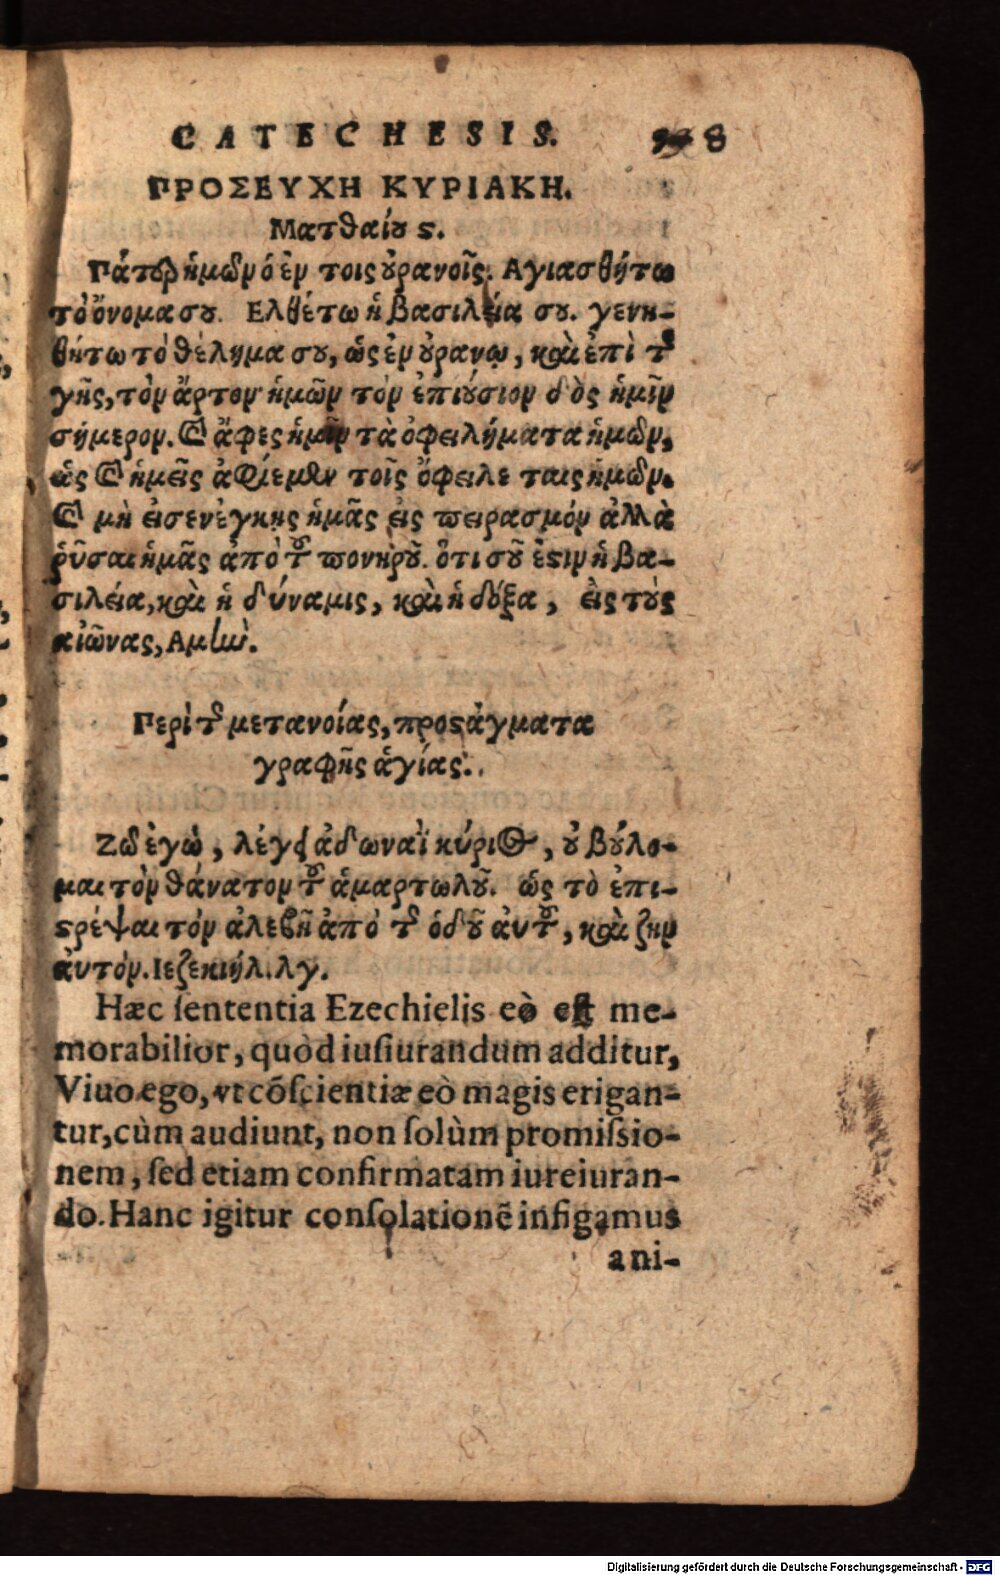 CATECHESIS. 8
ΠΡΟΣΕΥΧΗ ΚΥΡΙΑΚΗ.
Ματθαίου ϛ.
Πάτερ ἡμῶν ὁ ἐν τοις ουρανοῖς. Αγιασθήτω
τὸ ὄνομα σου. Ελθέτω ἡ βασιλεία σου. γενη-
θήτω τὸ θέλημα σου, ὡς ἐν ουρανῳ, καὶ ἐπὶ τῆς
γῆς, τὸν ἄρτον ἡμῶν τὸν ἐπιούσιον δὸς ἡμῖν
σήμερον. καὶ ἄφες ἡμῖν τὰ ὀφειλήματα ἡμῶν,
ὡς καὶ ἡμεῖς ἀφίεμεν τοῖς ὄφειλε ταις ἡμῶν.
καὶ μὴ εἰσενέγκῃς ἡμᾶς εἰς πειρασμόν ἀλλὰ
ῥῦσαι ἡμᾶς ἀπὸ τοῦ πονηροῦ. ὅτι σοῦ ἐϛιν ἡ βα-
σιλεία, καὶ ἡ δύναμις, καὶ ἡ δόξα, εἰς τοὺς
αἰῶνας, Αμὴν.
Περὶ τῆς μετανοίας, προϛάγματα
γραφῆς ἁγίας.
Ζῶ ἐγὼ, λέγει ἀδωναῒ κύριος, οὐ βούλο-
μαι τὸν θάνατον τοῦ ἁμαρτωλοῦ. ὡς τὸ ἐπι-
ϛρέψαι τὸν ἀσεβῆ ἀπὸ τῆς ὁδοῦ ἀυτοῦ, καὶ ζην
ἀυτόν. Ιεζεκιήλ. λγ.
Hæc ſententia Ezechielis eò eſt me-
morabilior, quòd iuſiurandum additur,
Viuo ego, vt cõſcientiæ eò magis erigan-
tur, cùm audiunt, non ſolùm promiſsio-
nem, ſed etiam confirmatam iureiuran-
do. Hanc igitur conſolationẽ infigamus
ani-
Digitalisierung gefördert durch die Deutsche Forschungsgemeinschaft - DFG